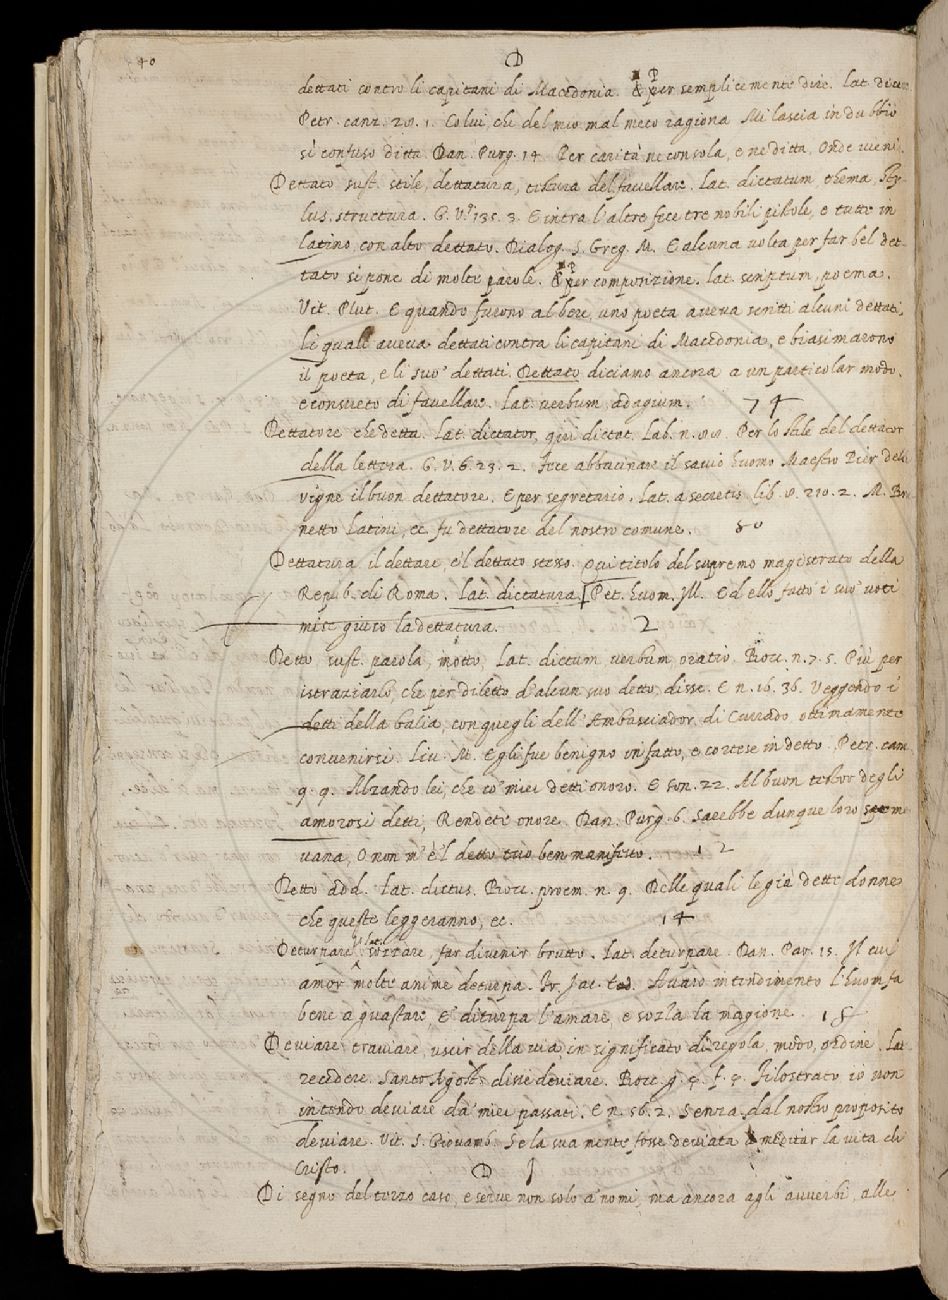 40
D
dettati contro li capitani di Macedonia. & per semplicemente dire. Lat. dicere
Petr. canz. 28. 1. Colui, che del mio mal meco ragiona Mi lascia in dubbio
sì confuso ditta. Dan. Purg. 14. Per carità ne consola, e ne ditta, Onde vieni.
Dettato sust. stile, dettatura, del favellare. Lat. dictatum, thema, sty-
lus, structura. G. V. 135. 3. E intra l'altre fece tre nobili pistole, e tutte in
latino, con alto dettato. Dialog. S. Greg. M. E alcuna volta per far bel det-
tato si pone di molte parole. & per composizione. lat. scriptum, poema.
Vit. Plut. E quando furono al bere, uno poeta aveva scritti alcuni dettati,
li quali aveva dettati contra li capitani di Macedonia, e biasimarono
il poeta, e li suo' dettati. Dettato diciamo ancora a un particolar modo,
e consueto di favellare. Lat. verbum, adagium. 74
Dettatore che detta. Lat. dictator, qui dictat. Lab. n. 88. Per lo stile del dettator
della lettera. G. V. 6. 23. 2. Fece abbacinare il savio huomo Maestro Pier delle
vigne il buon dettatore. E per segretario. Lat. a secretis. lib. 8. 210. 2. M. Bru
netto Latini, ec. fu dettatore del nostro comune. 50
Dettatura il dettare, e'l dettato stesso. qui titolo del supremo magistrato della
Repub. di Roma. Lat. dictatura. [Pet. huom. Ill. Ed ello fatto i suo' voti
mise giuso la dettatura. 2
Detto, sust. parola, motto, Lat. dictum, verbum, oratio. Bocc. n. 7. 5. Più per
istraziarlo, che per diletto d'alcun suo detto, disse. E n. 16. 36. Veggendo i
detti della balia, con quegli dell'Ambasciador, di Currado, ottimamente
convenirsi. Liv. M. Egli fue benigno in fatto, e cortese in detto. Petr. canz
9. 9. Alzando lei, che co' miei detti onoro. E son. 22. Al buon testor degli
amorosi detti, Rendete onore. Dan. Purg. 6. Sarebbe dunque loro speme
vana, O non m'è'l detto tuo ben manifesto. 12
Detto add. Lat. dictus. Bocc. proem. n. 9. Delle quali le già dette donne
che queste leggeranno, ec. 14
Deturpare, far divenir brutto. Lat. deturpare. Dan. Par. 15. Il cui
amor molte anime deturpa. Fr. Jac. tod. Avaro intendimento l'huom fa
bene a guastare, E diturpa l'amare, e sozla la magione. 15
Deviare, traviare, uscir della via in significato di regola, modo, ordine. Lat.
recedere. Santo Agost. disse deviare. Bocc. g. 4. f. 4. Filostrato, io non
intendo deviare da' miei passati. E n. 56. 2. Senza dal nostro proposito
deviare. Vit. S. Giovamb. Se la sua mente fosse deviata a meditar la vita di
Cristo.
D I
Di segno del terzo caso, e serve non solo a' nomi, ma ancora agli avverbi, alle